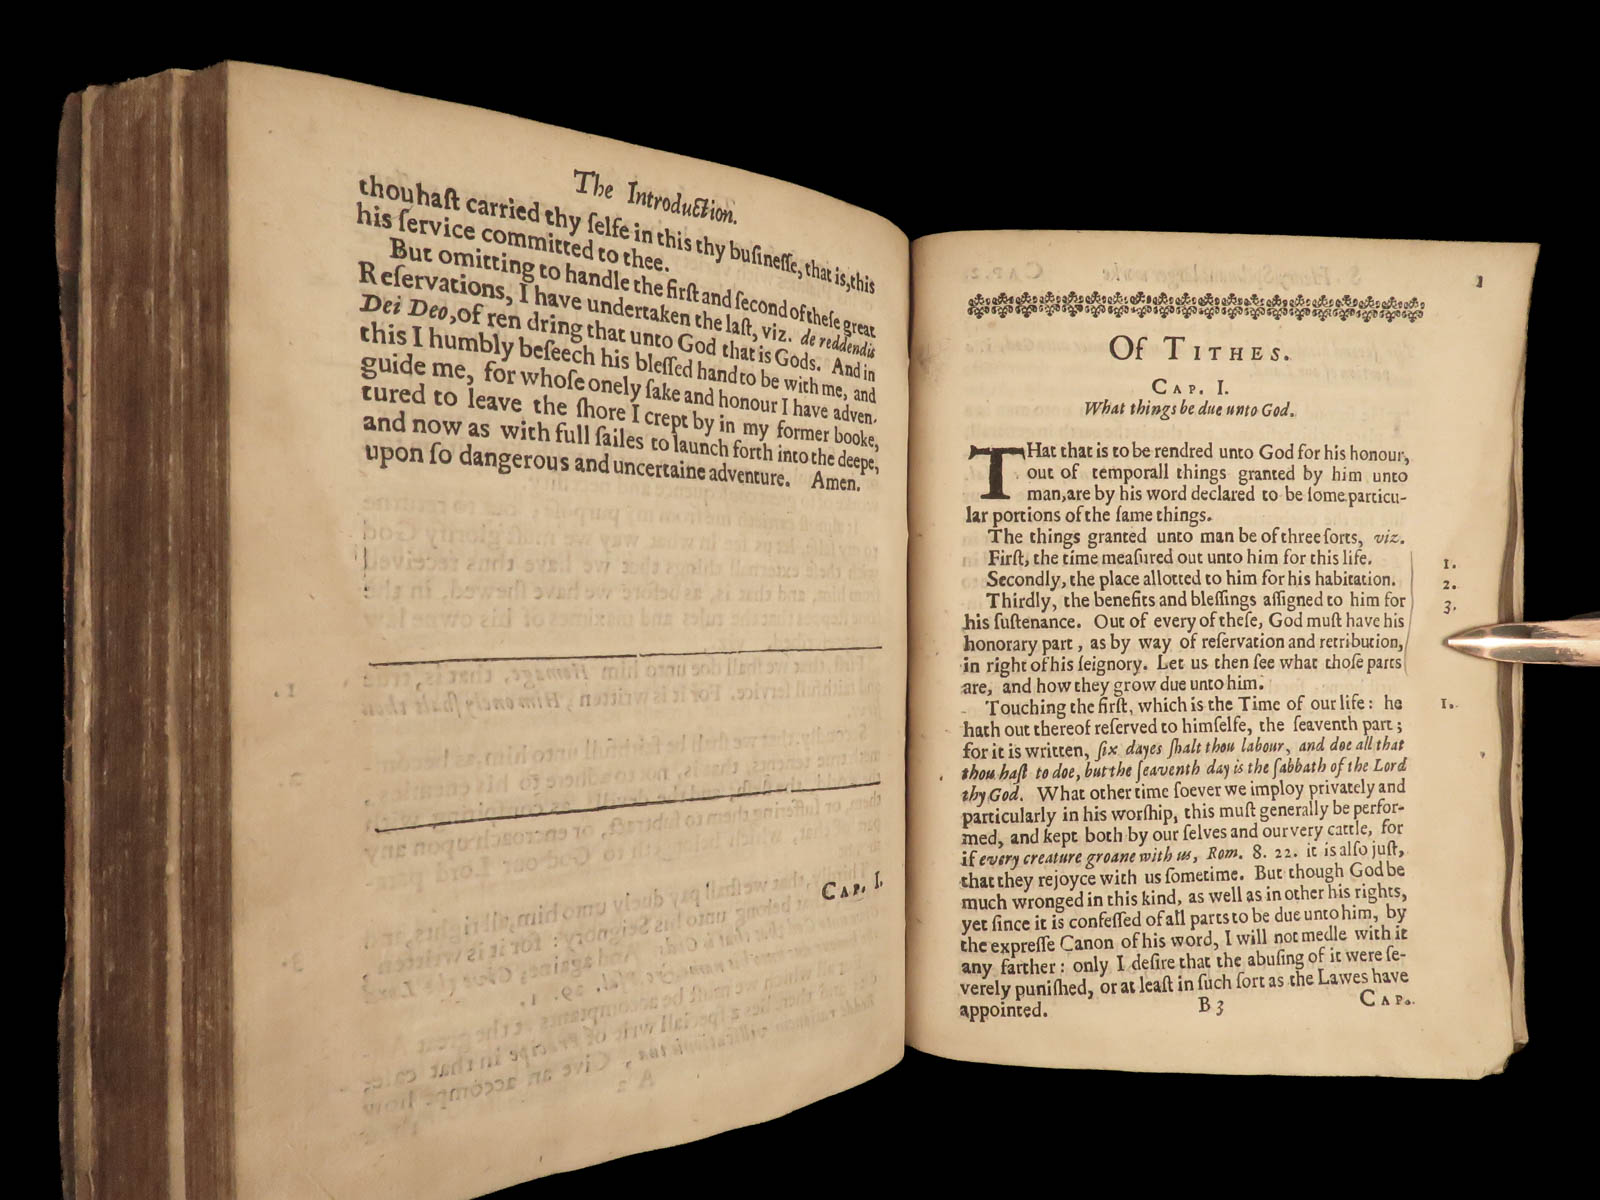 The Introduction.
thou haſt carried thy ſelfe in this thy buſineſſe, that is, this
his ſervice committed to thee.
But omitting to handle the firſt and ſecond of theſe great
Reſervations, I have undertaken the laſt, viz. de reddendis
Dei Deo, of ren dring that unto God that is Gods. And in
this I humbly beſeech his bleſſed hand to be with me, and
guide me, for whoſe onely ſake and honour I have adven-
tured to leave the ſhore I crept by in my former booke,
and now as with full ſailes to launch forth into the deepe,
upon ſo dangerous and uncertaine adventure. Amen.
CAP. I.
1
Of TITHES.
CAP. I.
What things be due unto God.
THat that is to be rendred unto God for his honour,
out of temporall things granted by him unto
man, are by his word declared to be ſome particu-
lar portions of the ſame things.
The things granted unto man be of three ſorts, viz.
Firſt, the time meaſured out unto him for this life. 1.
Secondly, the place allotted to him for his habitation. 2.
Thirdly, the benefits and bleſſings aſſigned to him for 3.
his ſuſtenance. Out of every of theſe, God muſt have his
honorary part, as by way of reſervation and retribution,
in right of his ſeignory. Let us then ſee what thoſe parts
are, and how they grow due unto him.
Touching the firſt, which is the Time of our life: he 1.
hath out thereof reſerved to himſelfe, the ſeaventh part;
for it is written, ſix dayes ſhalt thou labour, and doe all that
thou haſt to doe, but the ſeaventh day is the ſabbath of the Lord
thy God. What other time ſoever we imploy privately and
particularly in his worſhip, this muſt generally be perfor-
med, and kept both by our ſelves and our very cattle, for
if every creature groane with us, Rom. 8. 22. it is alſo juſt,
that they rejoyce with us ſometime. But though God be
much wronged in this kind, as well as in other his rights,
yet ſince it is confeſſed of all parts to be due unto him, by
the expreſſe Canon of his word, I will not medle with it
any farther: only I deſire that the abuſing of it were ſe-
verely puniſhed, or at leaſt in ſuch ſort as the Lawes have
appointed.
B 3
CAP.